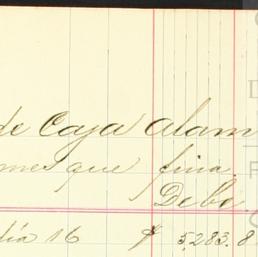 de Caja Alam
mes que fina
Debe
día 16 $ 5,283.8